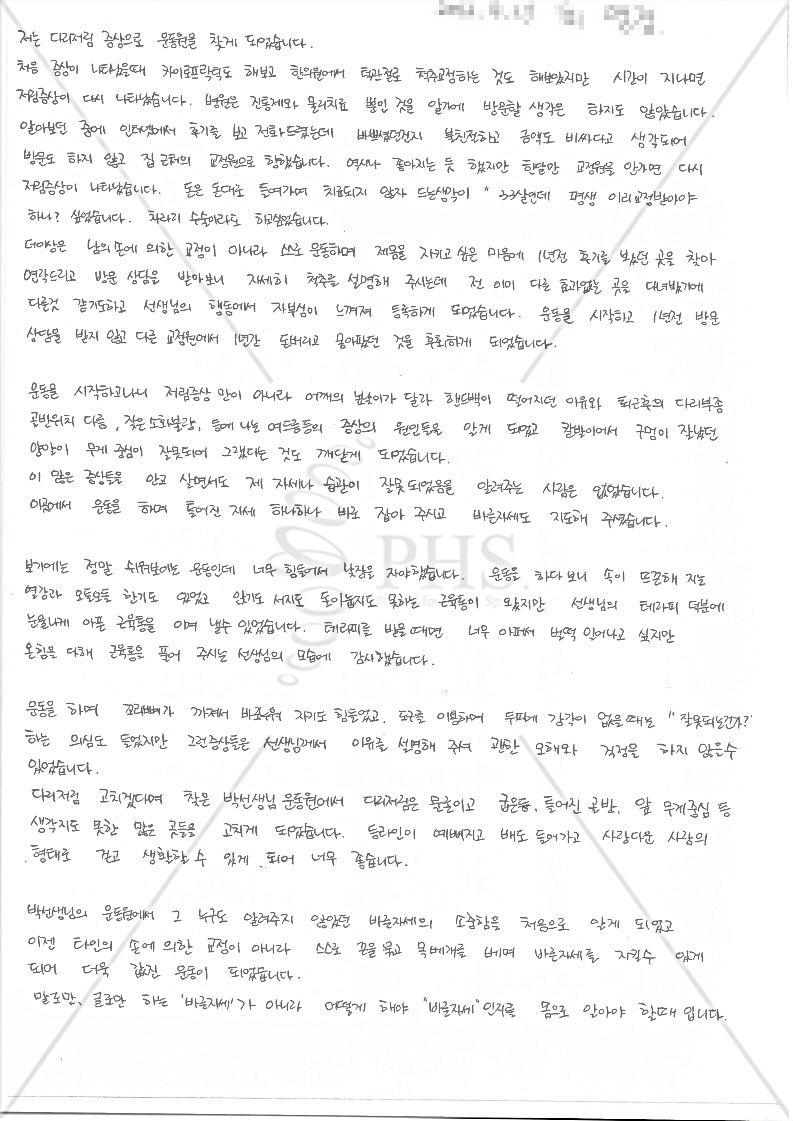 저는 다리저림 증상으로 운동원을 찾게 되었습니다.
처음 증상이 나타났을때 카이로프락틱도 해보고 한의원에서 턱관절로 척추교정하는 것도 해보았지만 시간이 지나면
저림증상이 다시 나타났습니다. 병원은 진통제와 물리치료 뿐인 것을 알기에 방문할 생각은 하지도 않았습니다.
알아보던 중에 인터넷에서 후기를 보고 전화드렸는데 바쁘셨던건지 불친절하고 금액도 비싸다고 생각되어
방문도 하지 않고 집 근처의 교정원으로 향했습니다. 역시나 좋아지는 듯 했지만 한달만 교정원을 안가면 다시
저림증상이 나타났습니다. 돈은 돈대로 들여가며 치료되지 않자 드는생각이 " 33살인데 평생 이리교정받아야
하나? 싶었습니다. 차라리 수술이라도 하고싶었습니다.
더이상은 남의손에 의한 교정이 아니라 스스로 운동하며 제몸을 지키고 싶은 마음에 1년전 후기를 보았던 곳을 찾아
연락드리고 방문 상담을 받아보니 자세히 척추를 설명해 주시는데 전 이미 다른 효과없는 곳을 다녀봤기에
다를것 같기도하고 선생님의 행동에서 자부심이 느껴져 등록하게 되었습니다. 운동을 시작하고 1년전 방문
상담을 받지 않고 다른 교정원에서 1년간 돈버리고 몸아팠던 것을 후회하게 되었습니다.
운동을 시작하고나니 저림증상 만이 아니라 어깨의 높낮이가 달라 핸드백이 떨어지던 이유와 퇴근후의 다리부종
골반위치 다름, 잦은 소화불량, 등에 나는 여드름등의 증상의 원인들을 알게 되었고 칼발이어서 구멍이 잘났던
양말이 무게 중심이 잘못되어 그랬다는 것도 깨닫게 되었습니다.
이 많은 증상들을 안고 살면서도 제 자세나 습관이 잘못 되었음을 알려주는 사람은 없었습니다.
이곳에서 운동을 하며 틀어진 자세 하나하나 바로 잡아 주시고 바른자세도 지도해 주셨습니다.
보기에는 정말 쉬워보이는 운동인데 너무 힘들어서 낮잠을 자야했습니다. 운동을 하다보니 속이 뜨끈해 지는
열감과 오돌오돌 한기도 있었고 앉기도 서지도 돌아눕지도 못하는 근육통이 왔지만 선생님의 테라피 덕분에
눈물나게 아픈 근육통을 이겨 낼수 있었습니다. 테라피를 받을때면 너무 아파서 벌떡 일어나고 싶지만
온힘을 다해 근육통을 풀어 주시는 선생님의 모습에 감사했습니다.
PHS
운동을 하며 꼬리뼈가 까져서 바로누워 자기도 힘들었고, 도구를 이용하며 두피에 감각이 없을때는 "잘못되는건가?"
하는 의심도 들었지만 그런증상들은 선생님께서 이유를 설명해 주셔 괜한 오해와 걱정을 하지 않을수
있었습니다.
다리저림 고치겠다며 찾은 박선생님 운동원에서 다리저림은 물론이고 굽은등, 틀어진 골반, 앞 무게중심 등
생각지도 못한 많은 곳들을 고치게 되었습니다. 등라인이 예뻐지고 배도 들어가고 사람다운 사람의
형태로 걷고 생활할 수 있게 되어 너무 좋습니다.
박선생님의 운동원에서 그 누구도 알려주지 않았던 바른자세의 소중함을 처음으로 알게 되었고
이젠 타인의 손에 의한 교정이 아니라 스스로 끈을 묶고 목베개를 베며 바른자세를 지킬수 있게
되어 더욱 값진 운동이 되었습니다.
말로만, 글로만 하는 '바른자세'가 아니라 어떻게 해야 "바른자세"인지를 몸으로 알아야 할때 입니다.